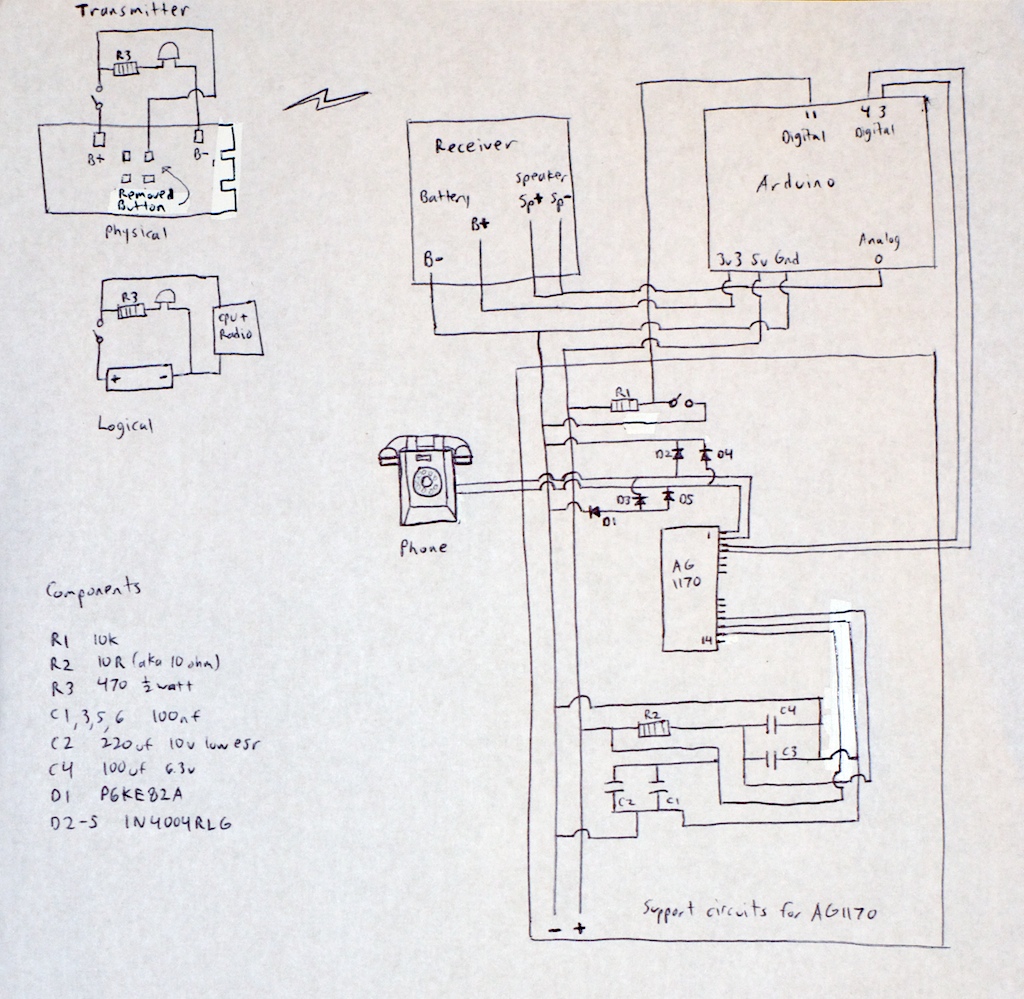 Transmitter
R3
B+
B-
Removed
Button
Physical
R3
CPU +
Radio
+ -
Logical
Receiver
Battery
Speaker
B+
Sp+ Sp-
B-
11
4 3
Digital
Digital
Arduino
Analog
3v3 5v Gnd
0
R1
D2
D4
D3
D5
D1
Phone
1
AG
1170
14
R2
C4
C3
C2
C1
Support circuits for AG1170
- +
Components
R1 10k
R2 10R (aka 10 ohm)
R3 470 ½ watt
C1,3,5,6 100nf
C2 220uf 10v low esr
C4 100uf 6.3v
D1 P6KE82A
D2-5 1N4004RLG